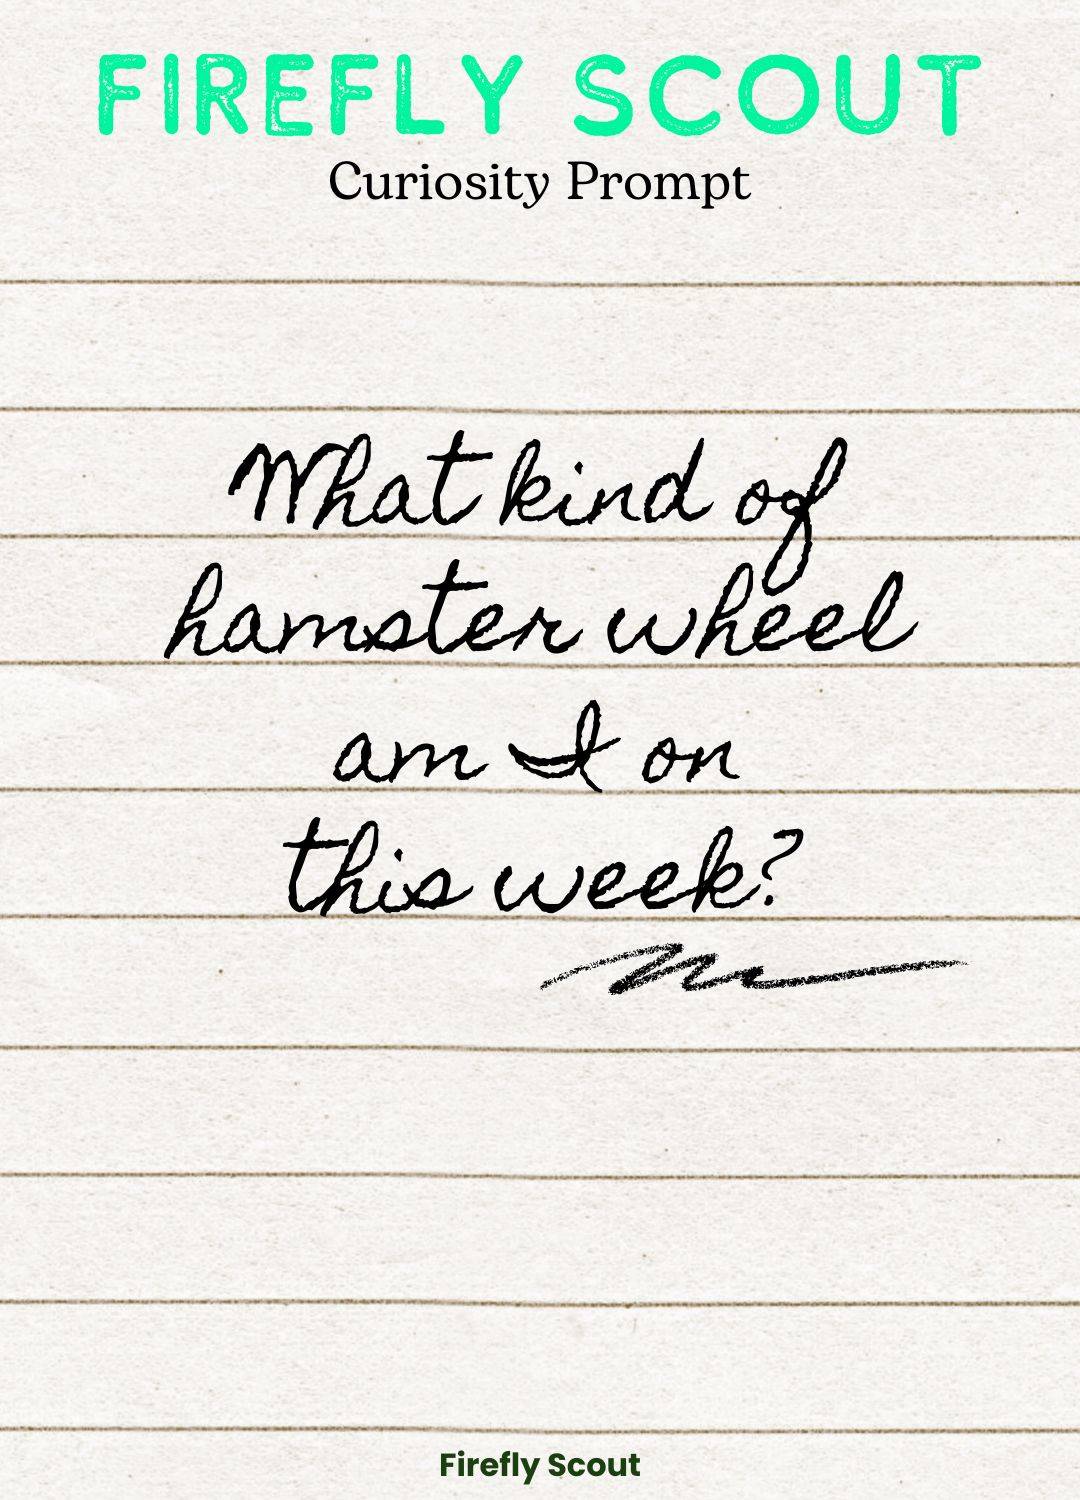 FIREFLY SCOUT
Curiosity Prompt
What kind of
hamster wheel
am I on
this week?
Firefly Scout